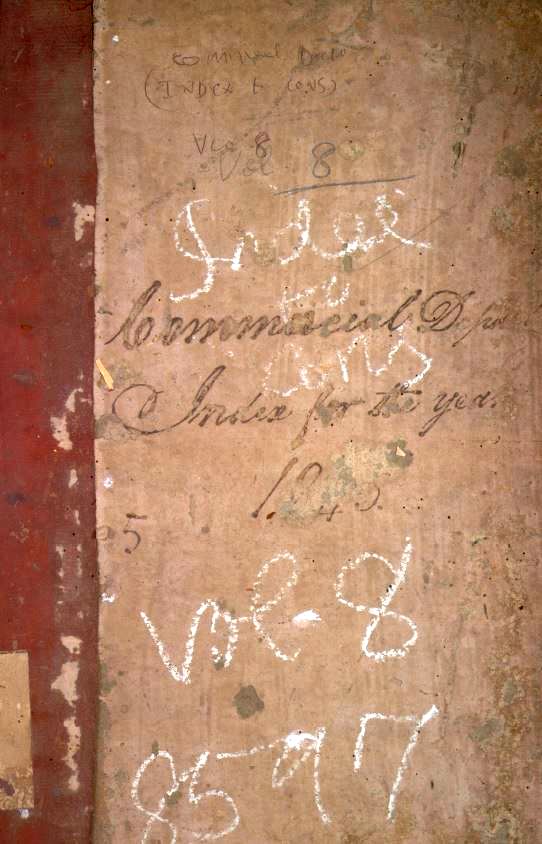 Commercial
(Index to Cons)
Vol 8
Vol 8
Index
to
Commercial
Cons
Index for the year
1845.
5
Vol-8
8597